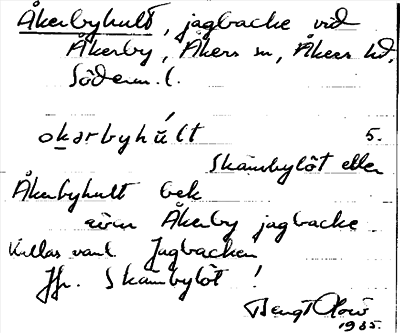 Åkerbyhult, jagbacke vid
Åkerby, Åkers sn, Åkers hd,
Söderm. l.
okarbyhúlt 5.
Skämbylöt eller
Åkerbyhult bek
även Åkerby jagbacke
Kallas vanl Jagbacken
Jfr. Skämbylöt !
Bengt
1935.